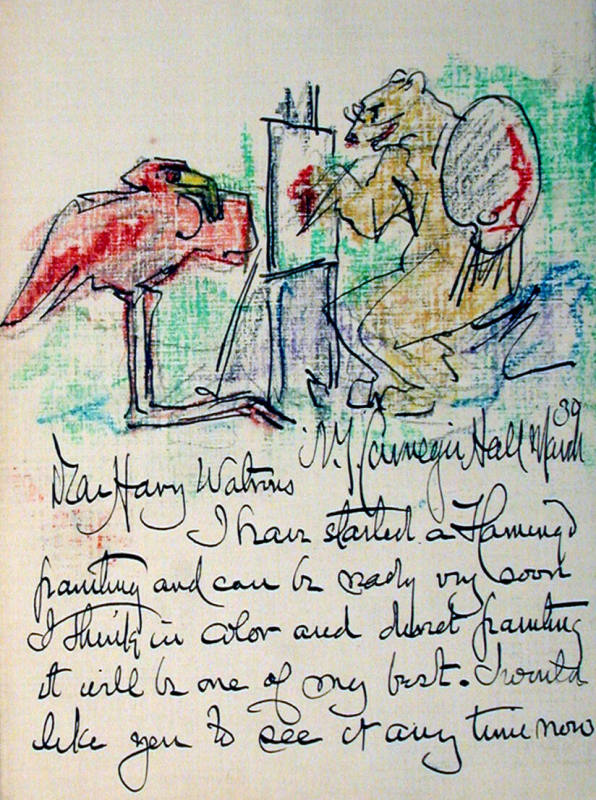 N.Y. Carnegie Hall March 30
Dear Harry Watrous
I have started a Flamingo
painting and can be ready very soon
I think in color and direct painting
it will be one of my best. I would
like you to see it any time now